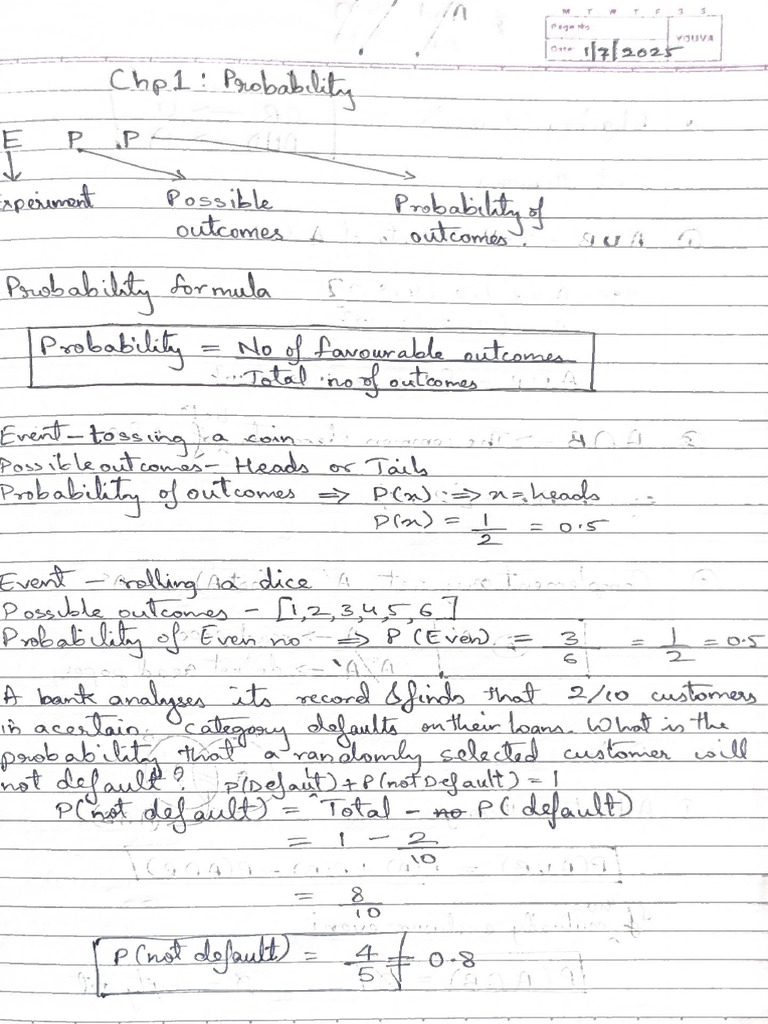 M T W T F S S
Page No.
YOUVA
Date: 1/7/2025
Chp1 : Probability
E P P
xperiment Possible outcomes Probability of outcomes.
Probability formula
Probability = No of favourable outcomes
Total no of outcomes
Event - tossing a coin
Possible outcomes - Heads or Tails
Probability of outcomes ⇒ P(x) ⇒ x = heads
P(x) = 1/2 = 0.5
Event - rolling a dice
Possible outcomes - [1,2,3,4,5,6]
Probability of Even no ⇒ P(Even) = 3/6 = 1/2 = 0.5
A bank analyses its record & finds that 2/10 customers
in a certain category defaults on their loans. What is the
probability that a randomly selected customer will
not default? P(Defaut) + P(not Default) = 1
P(not default) = Total - no P(default)
= 1 - 2/10
= 8/10
P(not default) = 4/5 = 0.8